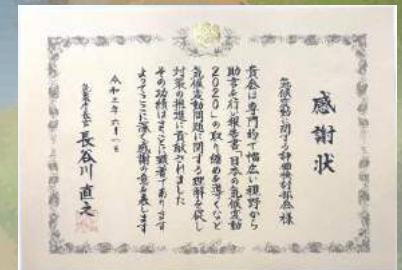 感謝状
気候変動に関する評価検討部会 様
貴会は専門的で幅広い視野から
助言を行い報告書「日本の気候変動
2020」の取り纏めを導くなど
気候変動問題に関する理解を促し
対策の推進に貢献されました
その功績はまことに顕著であります
よってここに深く感謝の意を表します
令和三年六月一日
気象庁長官 長谷川 直之